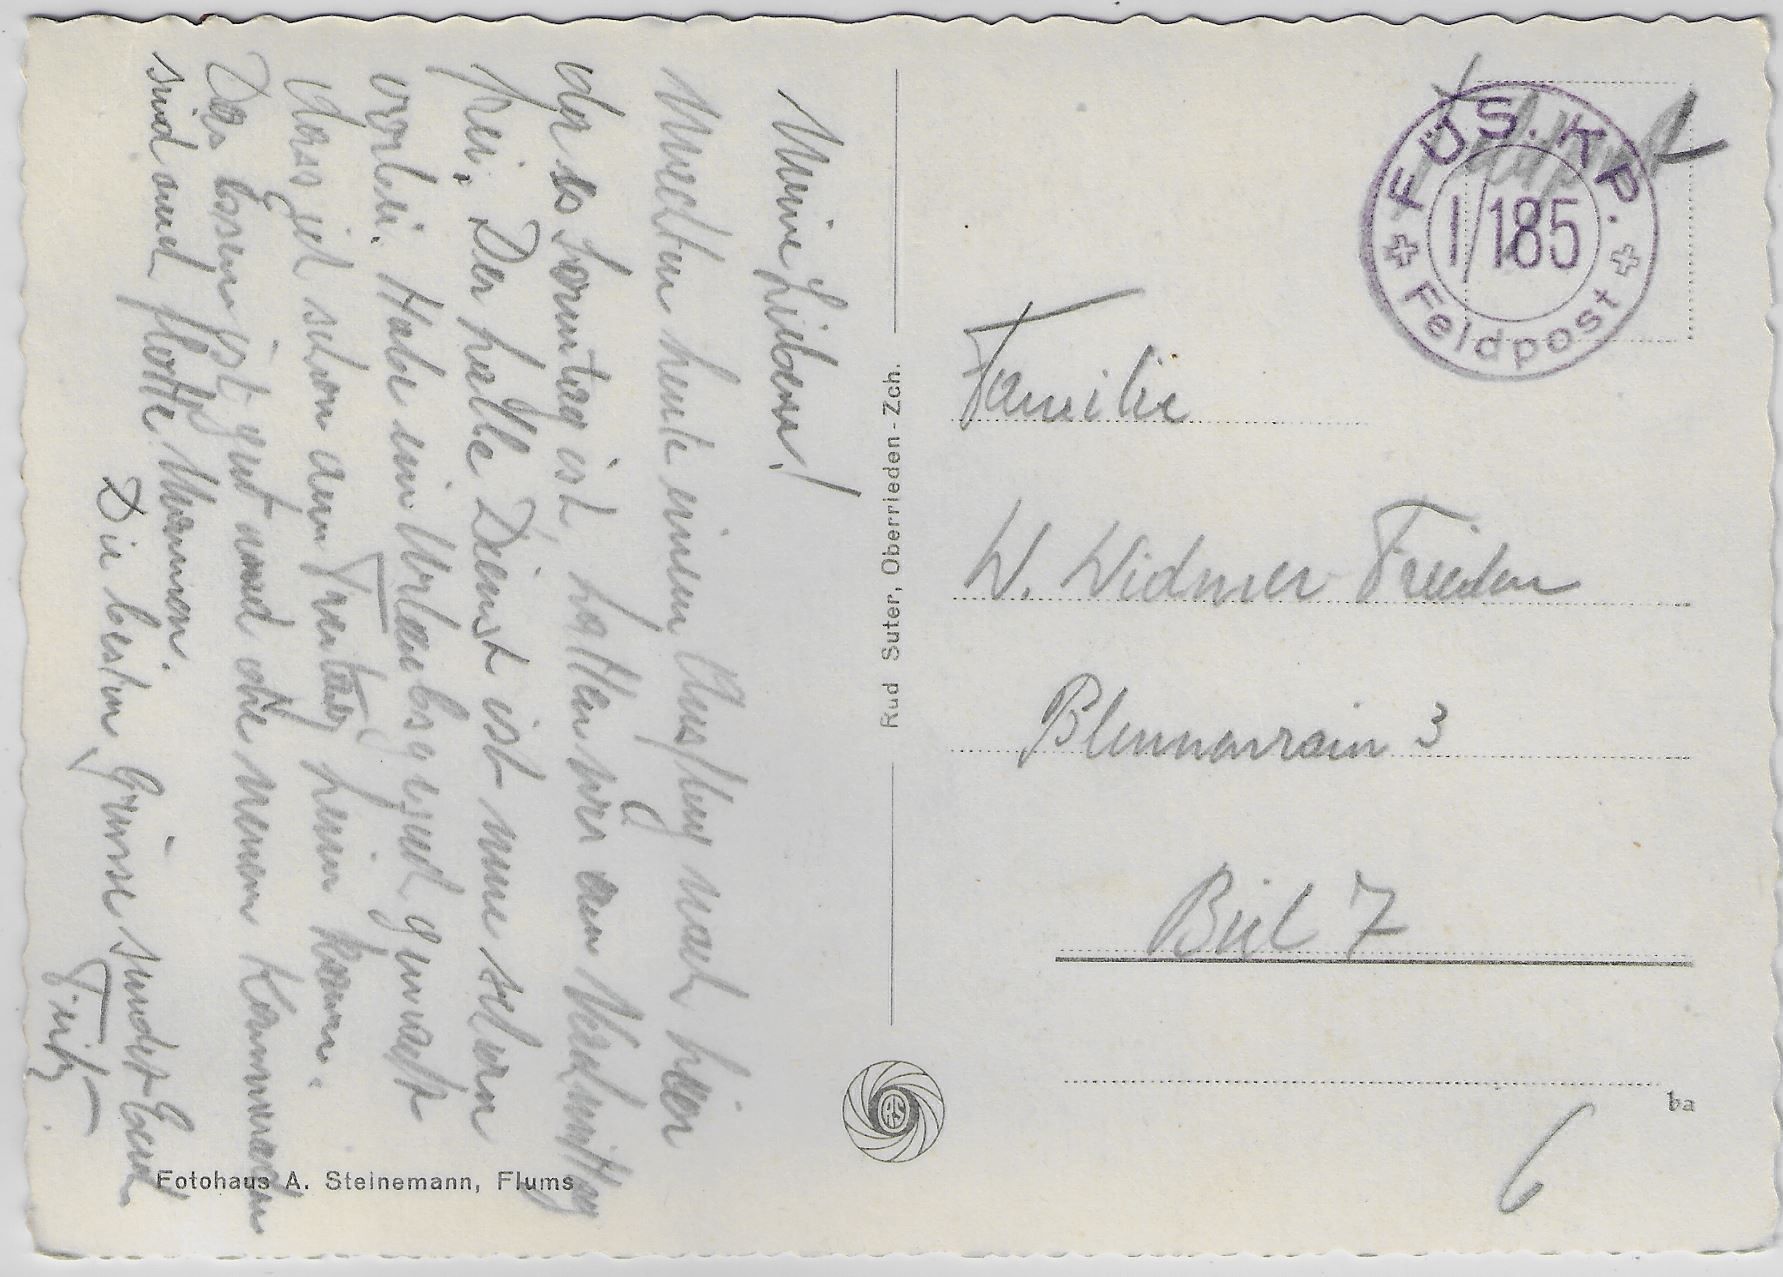 Meine Lieben!
Machten heute einen Ausflug nach hier
da es Sonntag ist, hatten wir am Nachmittag
frei. Der halbe Dienst ist nun schon
vorbei. Habe ein Urlaubsgesuch gemacht
dass ich schon am Freitag heim kann.
Das Essen ist gut und die neuen Kameraden
sind auch flotte Mannen.
Die besten Grüsse sendet Euch
Fritz
Fotohaus A. Steinemann, Flums
Rud Suter, Oberrieden-Zch.
RS
Feldpost
FÜS. KP.
I/185
Feldpost
Familie
W. Widmer
Blumenrain 3
Biel 7
ba
6